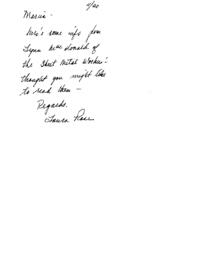 2/20
Marcia -
Here's some info from
Lynn MacDonald of
the Sheet Metal Workers:
thought you might like
to read them -
Regards,
Laura Ross